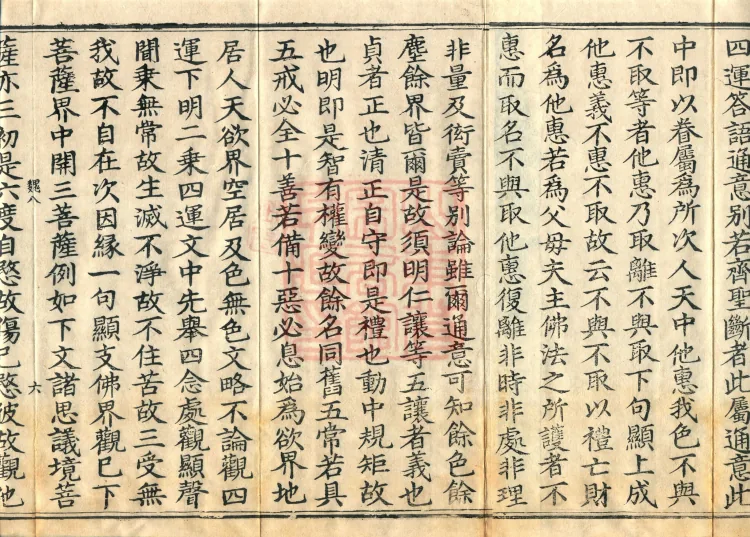 四運答語通意別若齊聖斷者此屬通意此
中即以眷屬為所次人天中他惠我色不與
不取等者他惠乃取離不與取下句顯上成
他惠義不惠不取故云不與不取以禮亡財
名為他惠若為父母夫主佛法之所護者不
惠而取名不與取他惠復離非時非處非理
非量及衒賣等別論雖爾通意可知餘色餘
塵餘界皆爾是故須明仁讓等五讓者義也
貞者正也清正自守即是禮也動中規矩故
也明即是智有權變故餘名同舊五常若具
五戒必全十善若備十惡必息始為欲界地
居人天欲界空居及色無色文略不論觀四
運下明二乗四運文中先舉四念處觀顯聲
聞乗無常故生滅不淨故不住苦故三受無
我故不自在次因緣一句顯支佛界觀巳下
菩薩界中開三菩薩例如下文諸思議境菩
魏八
六
薩亦三初是六度自愍故傷已愍彼故觀他